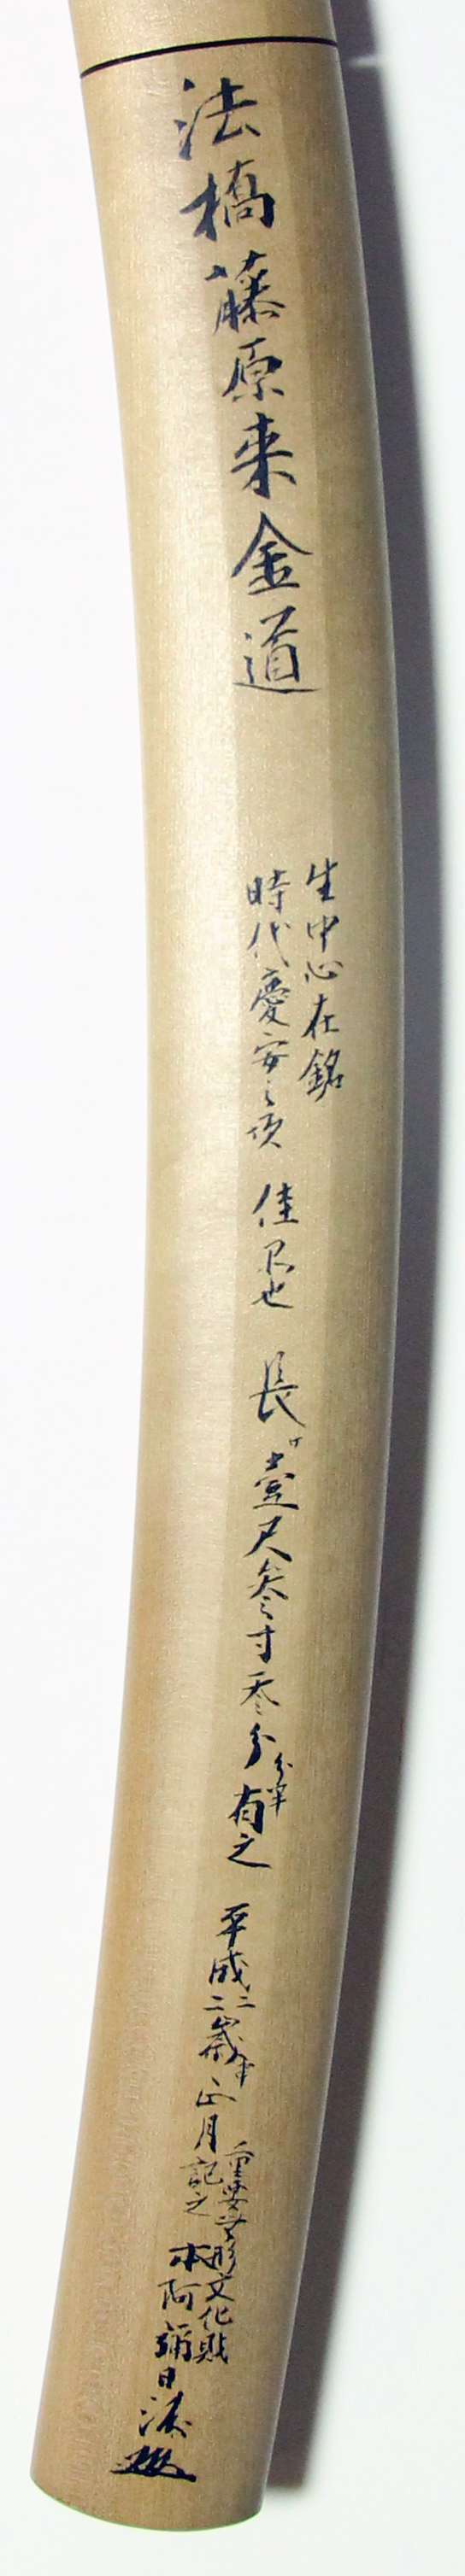 法橋藤原来金道
生中心在銘
時代慶安之頃
佳作也
長サ壹尺参寸参分
分半
有之
平成二二歳
正月
記之
重要無形文化財
本阿彌日洲